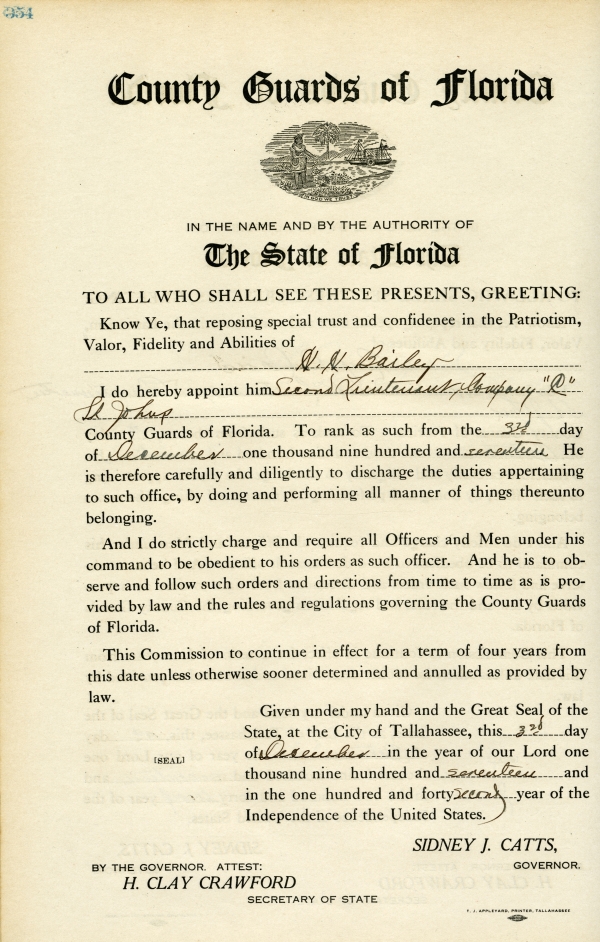 354
County Guards of Florida
IN GOD WE TRUST
IN THE NAME AND BY THE AUTHORITY OF
The State of Florida
TO ALL WHO SHALL SEE THESE PRESENTS, GREETING:
Know Ye, that reposing special trust and confidence in the Patriotism,
Valor, Fidelity and Abilities of
H. H. Bailey
I do hereby appoint him Second Lieutenant, Company "C"
St Johns
County Guards of Florida. To rank as such from the 3rd day
of December one thousand nine hundred and seventeen He
is therefore carefully and diligently to discharge the duties appertaining
to such office, by doing and performing all manner of things thereunto
belonging.
And I do strictly charge and require all Officers and Men under his
command to be obedient to his orders as such officer. And he is to ob-
serve and follow such orders and directions from time to time as is pro-
vided by law and the rules and regulations governing the County Guards
of Florida.
This Commission to continue in effect for a term of four years from
this date unless otherwise sooner determined and annulled as provided by
law.
Given under my hand and the Great Seal of the
State, at the City of Tallahassee, this 3rd day
of December in the year of our Lord one
[SEAL]
thousand nine hundred and seventeen and
in the one hundred and forty second year of the
Independence of the United States.
SIDNEY J. CATTS,
GOVERNOR.
BY THE GOVERNOR. ATTEST:
H. CLAY CRAWFORD
SECRETARY OF STATE
T. J. APPLEYARD, PRINTER, TALLAHASSEE